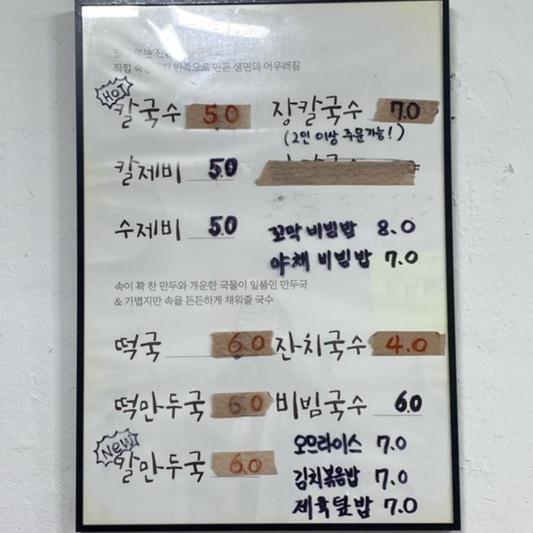 직접 만든 생면의 어우러짐
HOT
칼국수 5.0 장칼국수 7.0
(2인 이상 주문가능!)
칼제비 5.0
수제비 5.0
꼬막비빔밥 8.0
야채 비빔밥 7.0
속이 꽉 찬 만두와 개운한 국물이 일품인 만두국
& 가볍지만 속을 든든하게 채워줄 국수
떡국 6.0 잔치국수 4.0
떡만두국 6.0 비빔국수 6.0
NEW
알만두국 6.0
오므라이스 7.0
김치볶음밥 7.0
제육덮밥 7.0